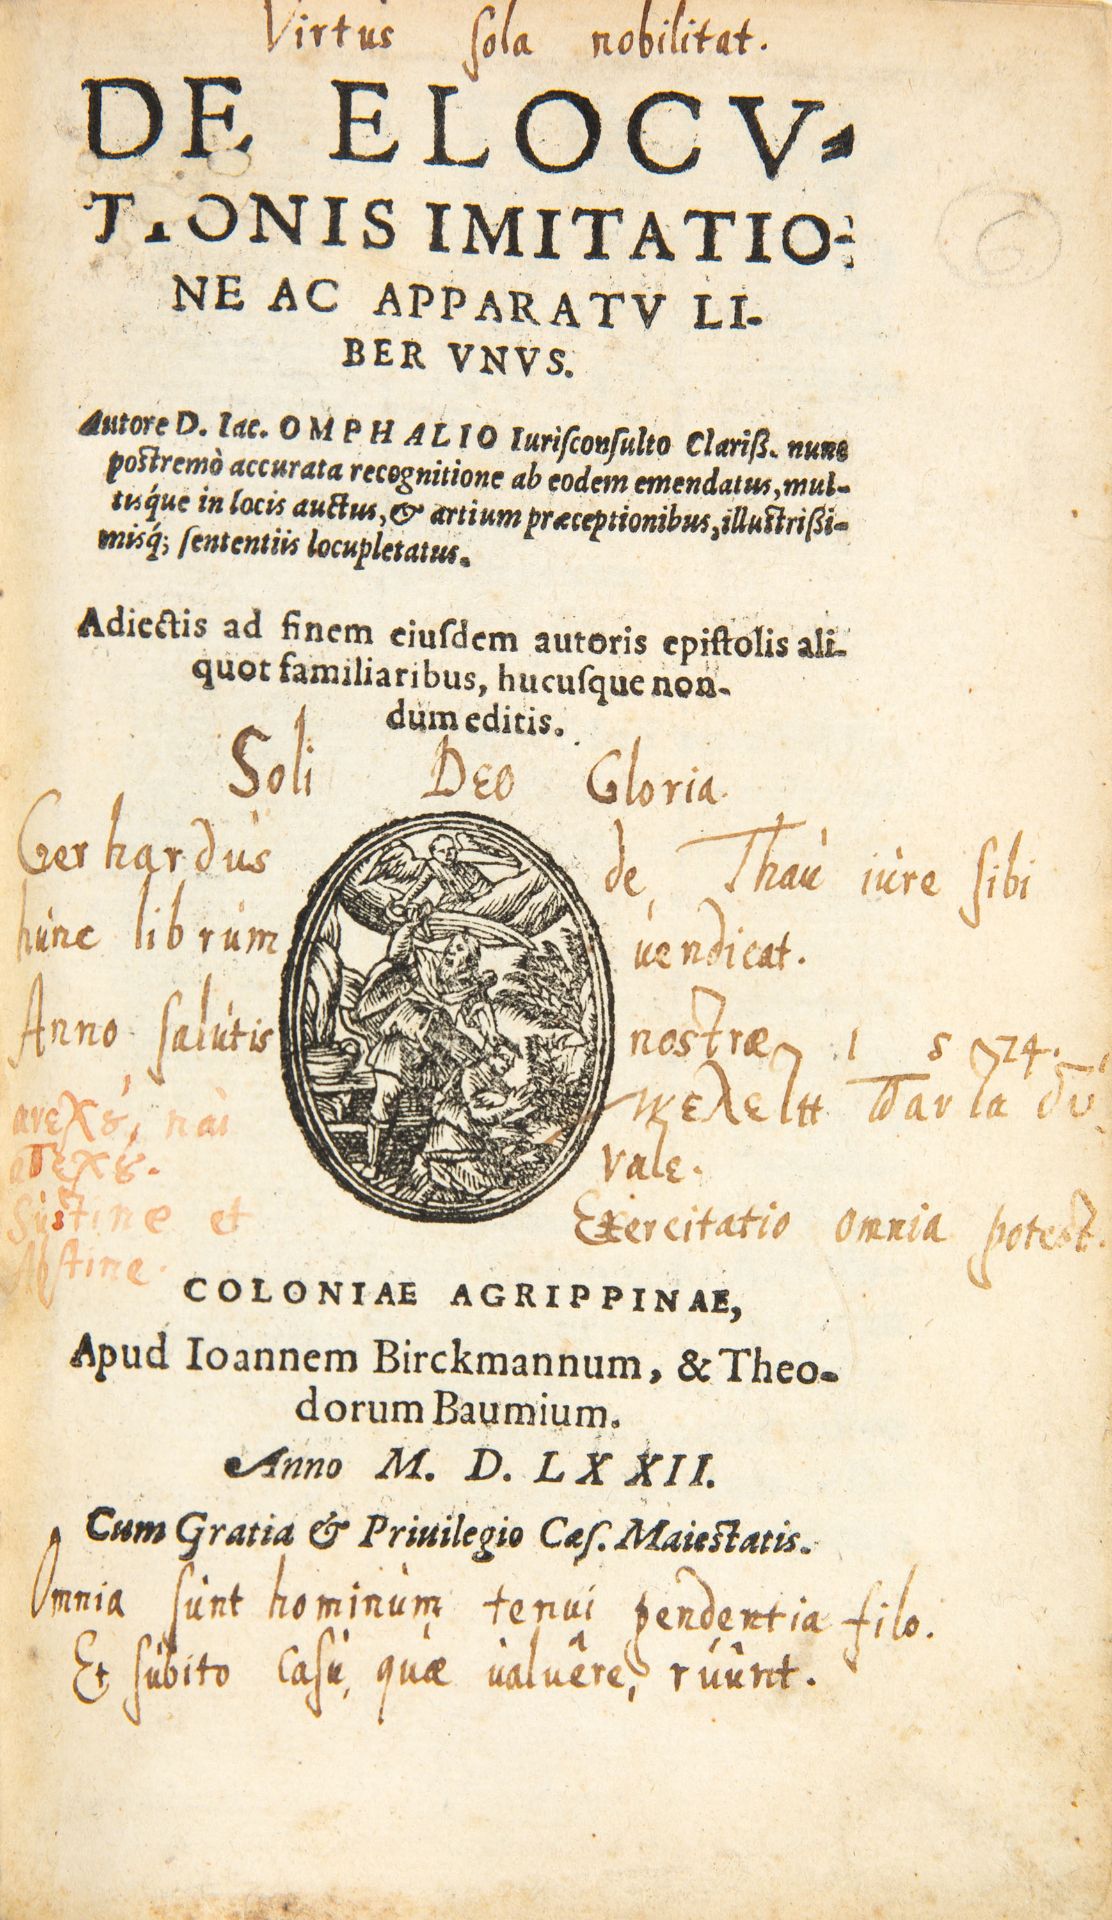 Virtùs sola nobilitat.
DE ELOCV-
TIONIS IMITATIO-
NE AC APPARATV LI-
BER VNVS.
Autore D. Iac. OMPHALIO Iuriſconſulto Clariß. nunc
poſtremò accurata recognitione ab eodem emendatus, mul-
tisq́ue in locis auctus, & artium præceptionibus, illuſtrißi-
misq́; ſententiis locupletatus.
Adiectis ad finem eiuſdem autoris epiſtolis ali-
quot familiaribus, hucuſque non-
dum editis.
Soli Deo Gloria.
Gerhardùs de Thaù iùre ſibi
hùnc librùm ùendicat.
Anno ſalùtis nostræ 1 5 74.
ανεχȣ, καὶ
απεχȣ.
Sùstine et
Abſtine.
μελετη
Vale.
Exercitatio omnia potest.
COLONIAE AGRIPPINAE,
Apud Ioannem Birckmannum, & Theo-
dorum Baumium.
Anno M. D. LXXII.
Cum Gratia & Priuilegio Cæſ. Maieſtatis.
Omnia ſùnt hominùm tenui pendentia filo.
Et ſùbito caſù, qùæ ùalùêre, rùùnt.
6